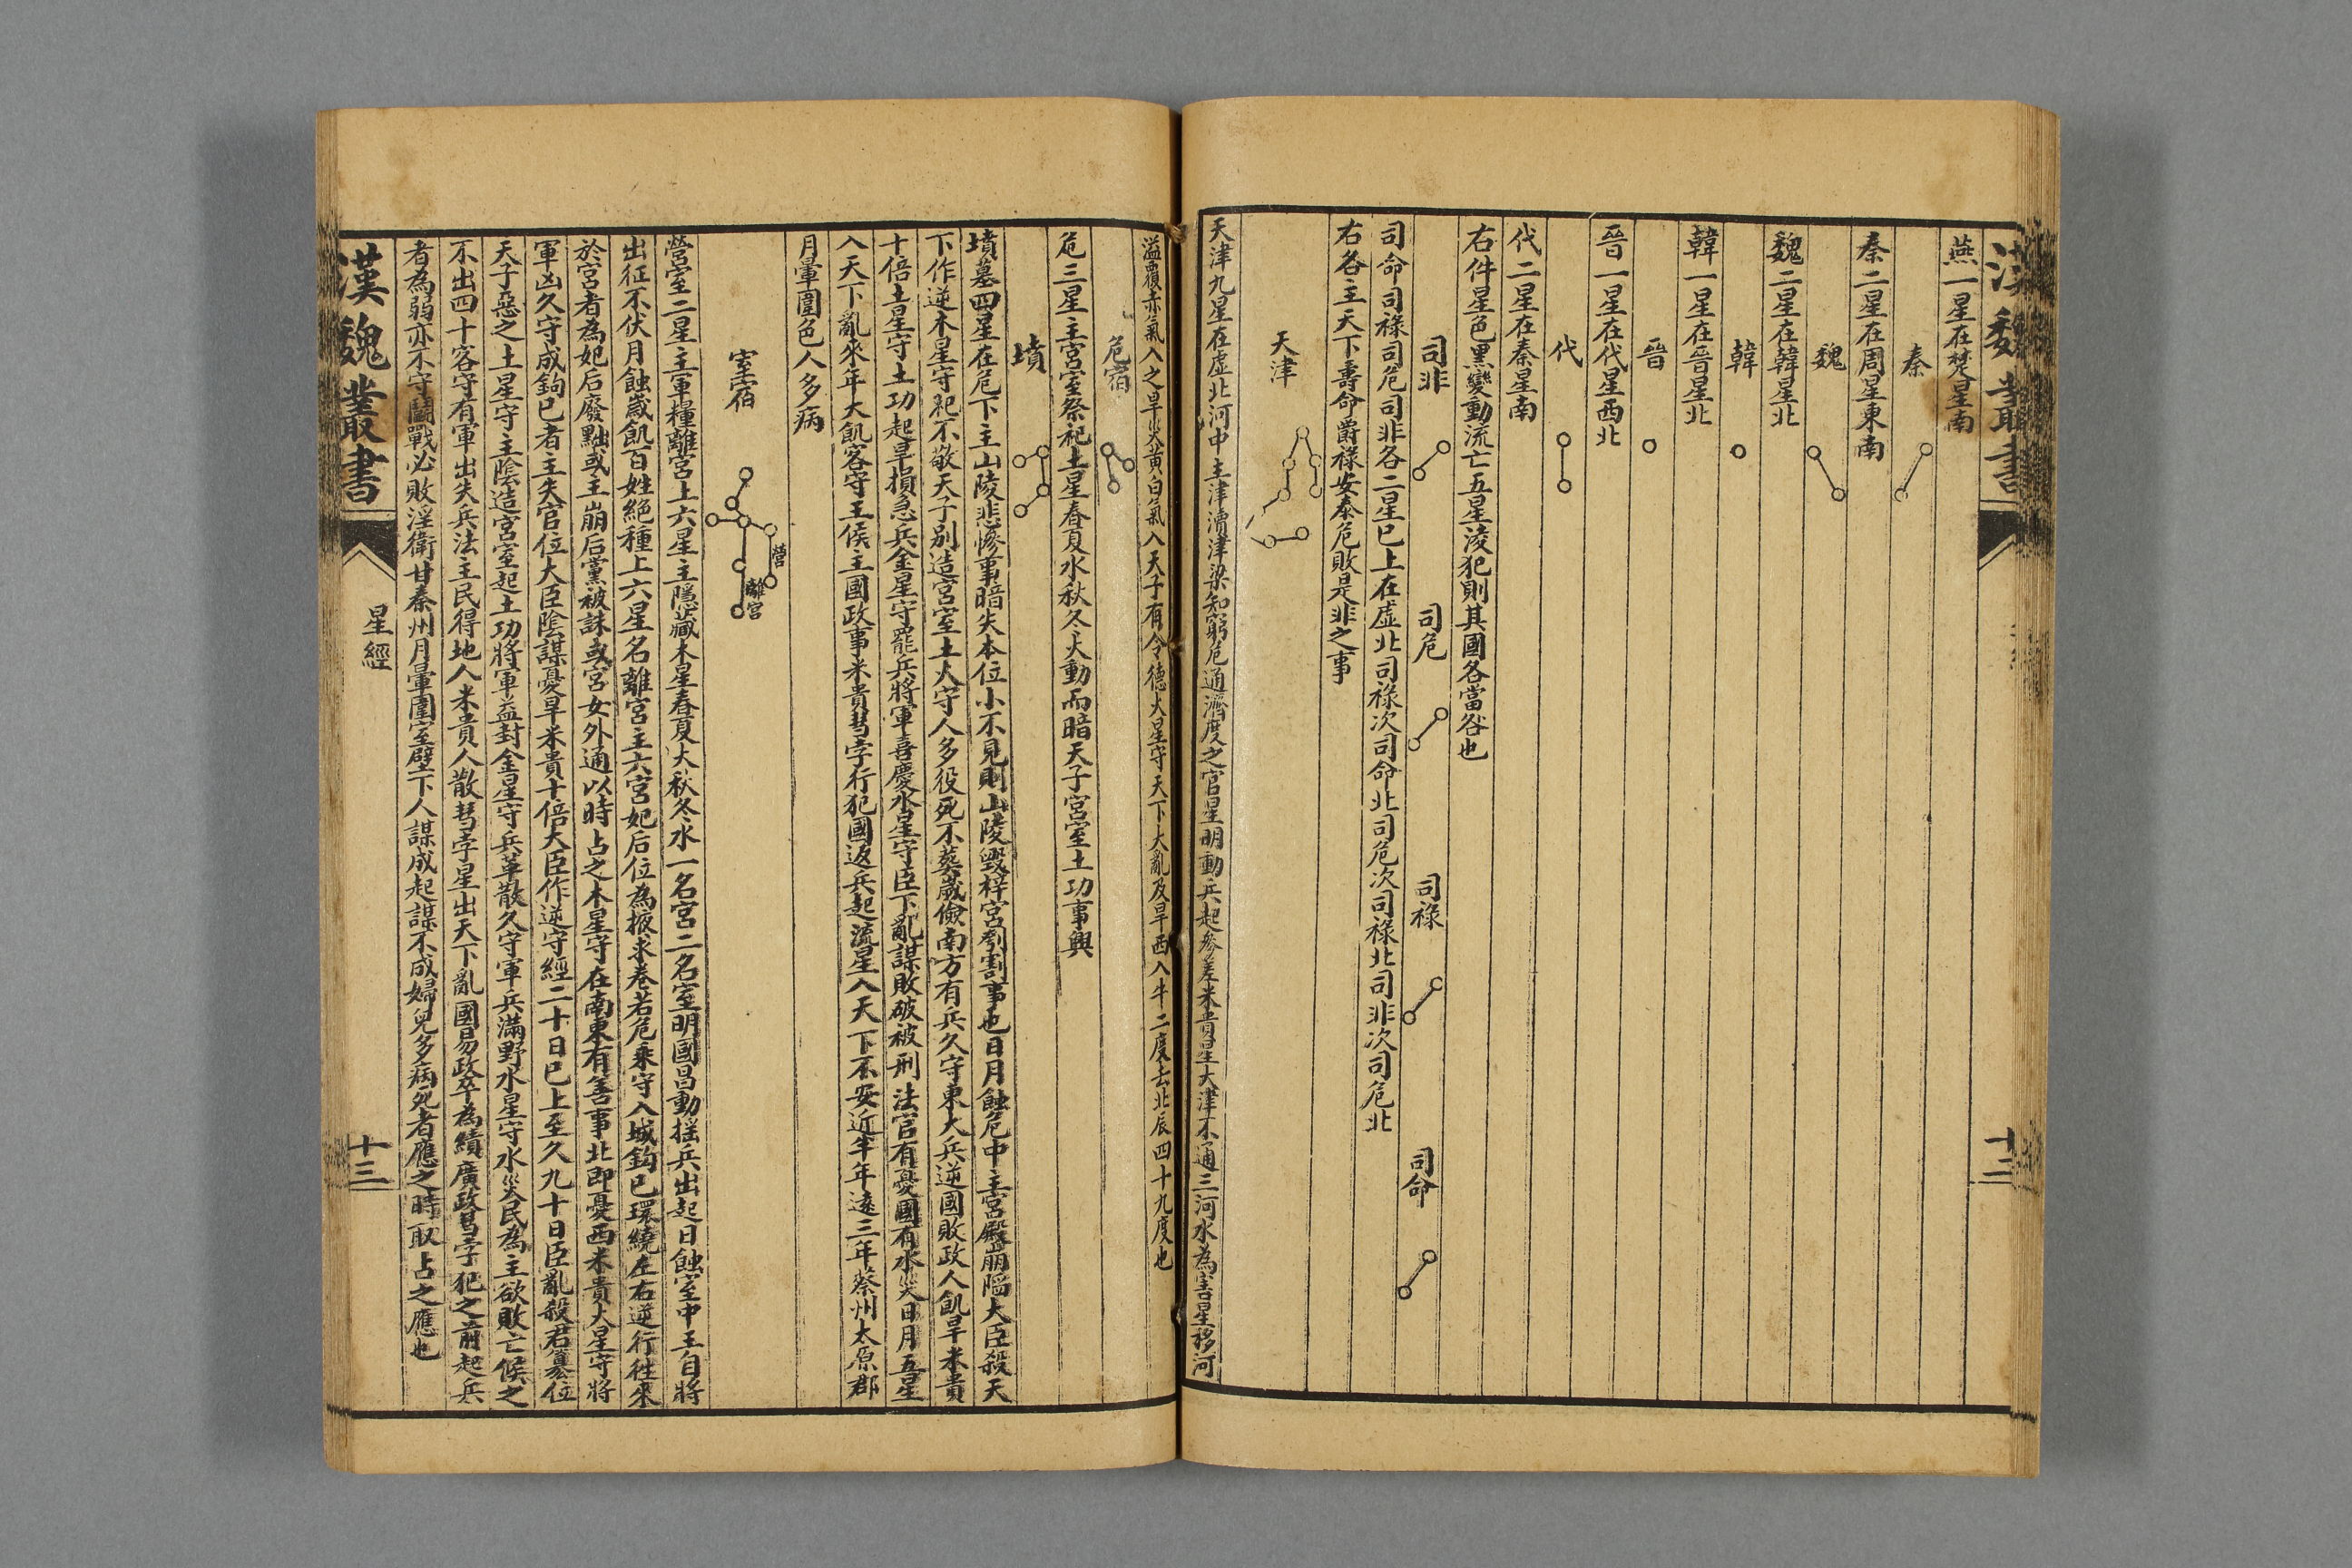 漢魏叢書
十二
燕一星在楚星南
秦
秦二星在周星東南
魏
魏二星在韓星北
韓
韓一星在晉星北
晉
晉一星在代星西北
代
代二星在秦星南
右件星色黑變動流亡五星淩犯則其國各當咎也
司非 司危 司祿 司命
司命司祿司危司非各二星已上在虛北司祿次司命北司危次司祿北司非次司危北
右各主天下壽命爵祿安泰危敗是非之事
天津
天津九星在虛北河中主津瀆津梁知窮危通濟度之官星明動兵起參差米貴星大津不通三河水為害星移河
溢覆赤氣入之旱災黃白氣入天子有令德大星守天下大亂及旱西入牛二度去北辰四十九度也
危宿
危三星主宮室祭祀土星春夏水秋冬火動而暗天子宮室土功事興
墳
墳墓四星在危下主山陵悲慘事暗失本位小不見則山陵毀梓宮刳割事也日月蝕危中主宮殿崩陷大臣殺天
下作逆木星守祀不敬天子別造宮室土火守人多役死不葬歲儉南方有兵久守東大兵逆國敗政人飢旱米貴
十倍土星守土功起旱損急兵金星守罷兵將軍喜慶水星守臣下亂謀敗破被刑法官有憂國有水災日月五星
入天下亂來年大飢客守王侯主國政事米貴彗孛行犯國返兵起流星入天下不安近半年遠三年蔡州太原郡
月暈圍色人多病
室宿
營
離宮
營室二星主軍糧離宮上六星主隱藏木星春夏火秋冬水一名宮二名室明國昌動搖兵出起日蝕室中王自將
出征不伏月蝕歲飢百姓絕種上六星名離宮主六宮妃后位為掖求巷若危乘守入城鈎已環繞左右逆行往來
於宮者為妃后廢黜或王崩后黨被誅或宮女外通以時占之木星守在南東有善事北即憂西米貴火星守將
軍凶久守成鈎已者主失官位大臣陰謀憂旱米貴十倍大臣作逆守經二十日已上至久九十日臣亂殺君纂位
天子惡之土星守主陰造宮室起土功將軍益封金星守兵革散久守軍兵滿野水星守水災民為主欲敗亡候之
不出四十客守有軍出失兵法主民得地人米貴人散彗孛星出天下亂國易政卒為績廣政彗孛犯之前起兵
者為弱亦不守鬬戰必敗淫衛甘秦州月暈圍室壁下人謀成起謀不成婦兒多病死者應之時取占之應也
漢魏叢書
星經
十三